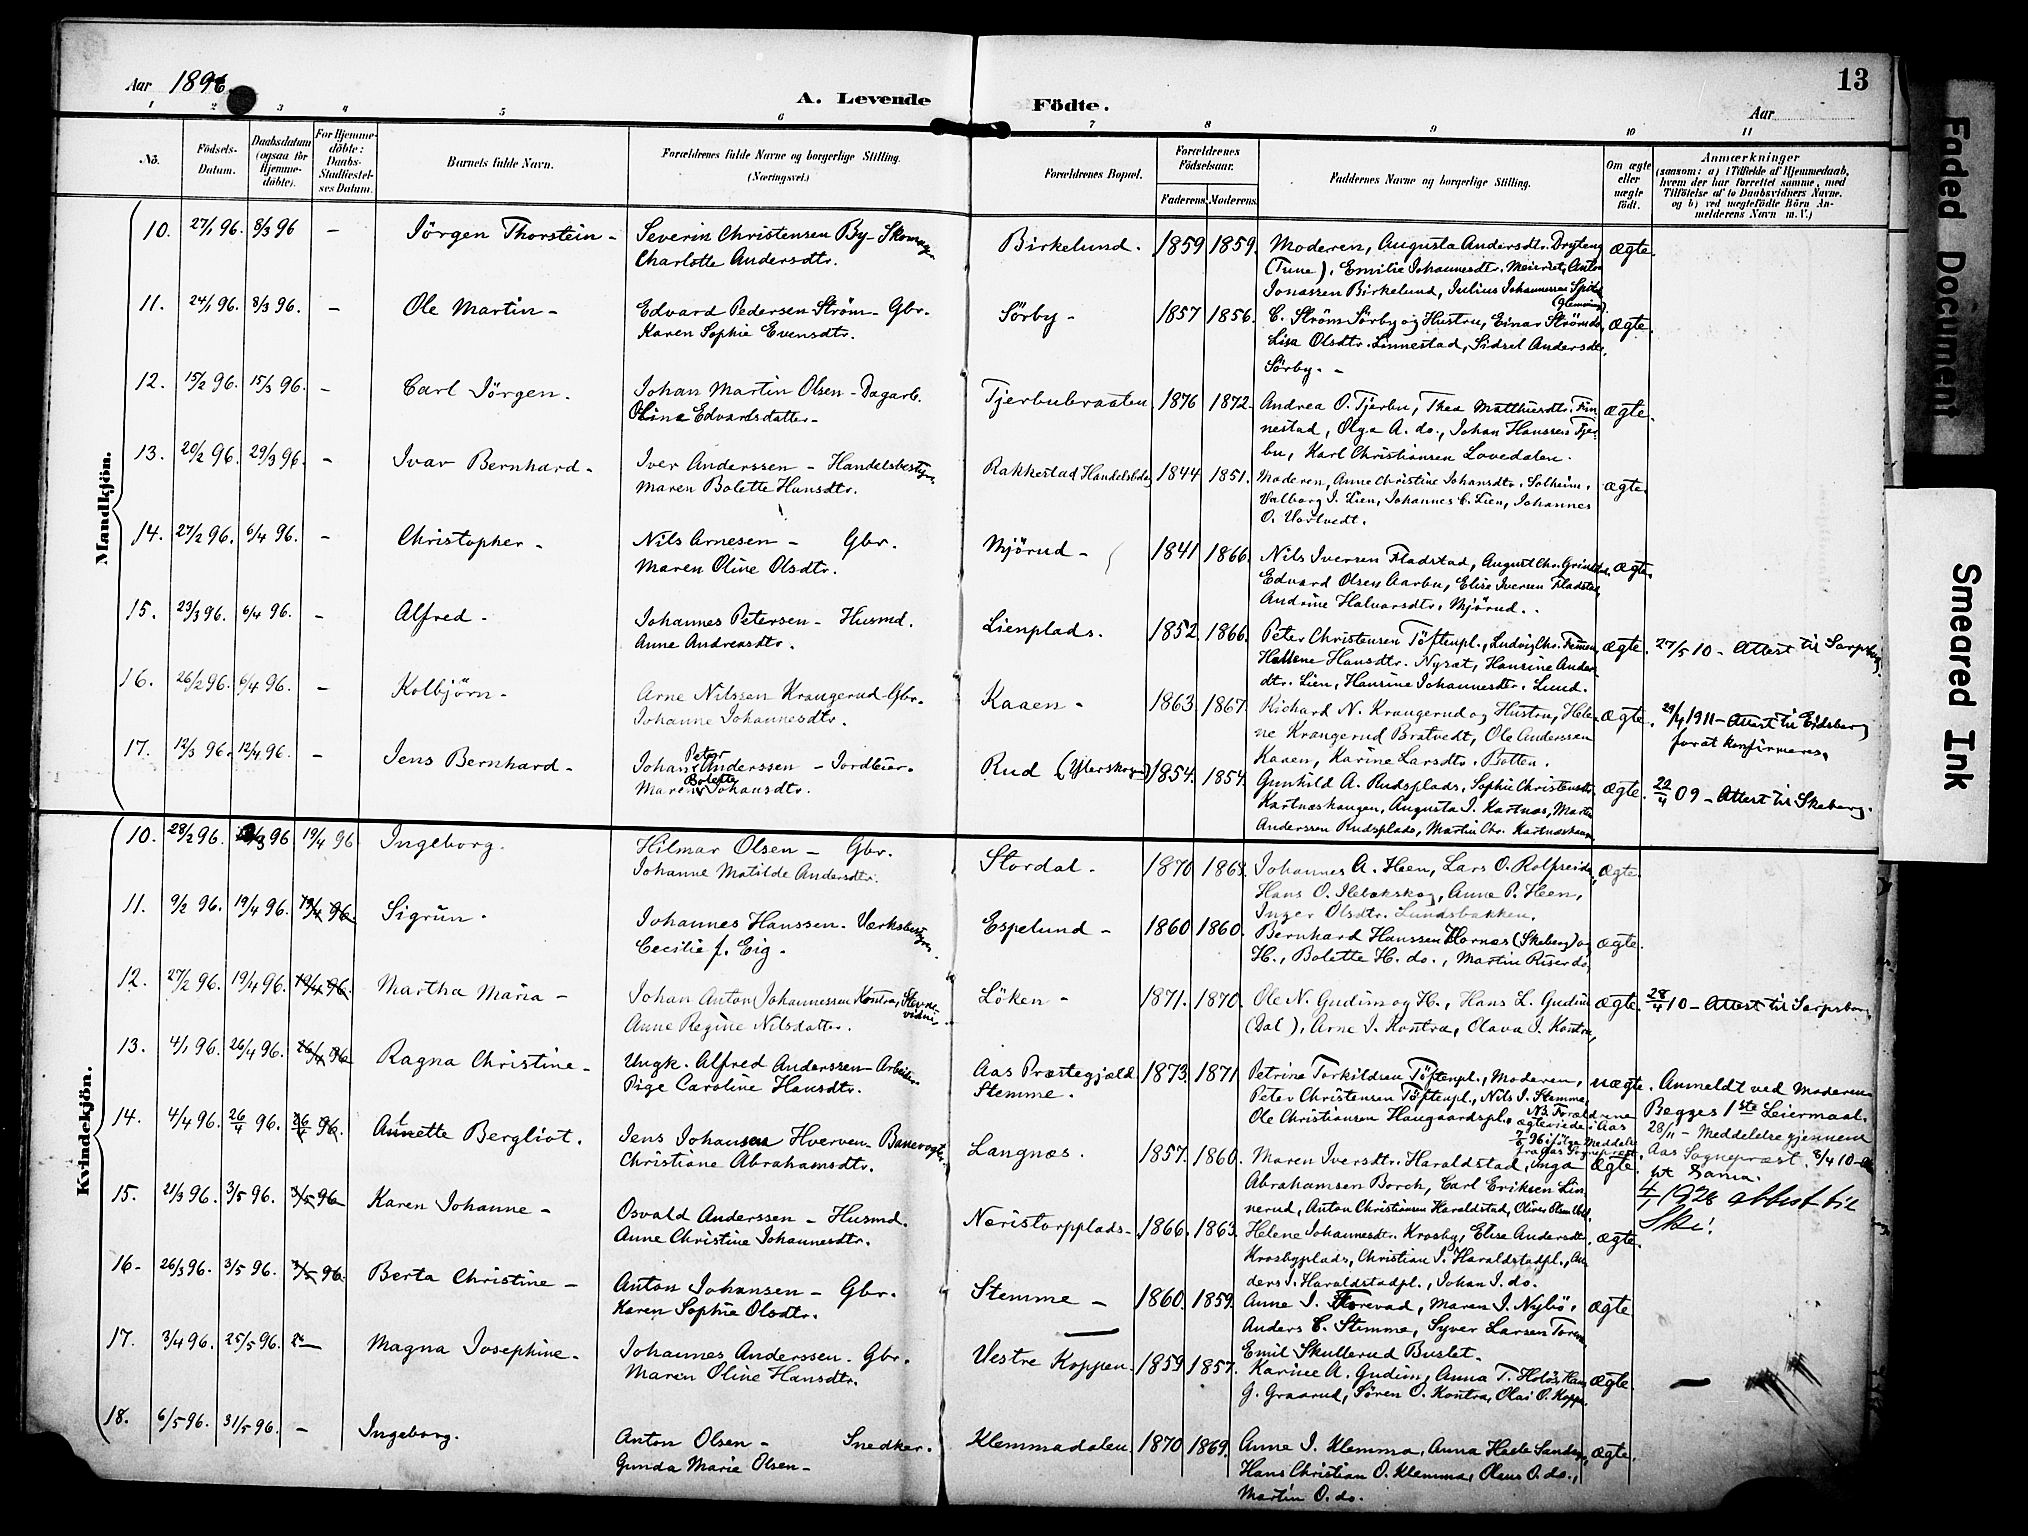 Aar 1896
A. Levende Födte.
13
Aar
1 2 3 4 5 6 7 8 9 10 11
No.
Födsels-Datum.
Daabsdatum (ogsaa för Hjemme-döbte).
For Hjemme-döbte: Daabs-Stadfæstelses Datum.
Barnets fulde Navn.
Forældrenes fulde Navne og borgerlige Stilling. (Næringsvei.)
Forældrenes Bopæl.
Forældrenes Födselsaar.
Faderens. Moderens.
Faddernes Navne og borgerlige Stilling.
Om ægte eller uægte födt.
Anmærkninger
(saasom: a) i Tilfælde af Hjemmedaab, hvem der har forrettet samme, med Tilföielse af to Daabsvidners Navne. og b) ved uægtefödte Börn Anmelderens Navn m. V.)
Mandkjön.
10. 27/1 96. 8/3 96 - Jörgen Thorstein - Severin Christensen By - Skomag. Birkelund. 1859 1859. Moderen, Augusta Andersdtr. ægte.
Charlotte Andersdtr. (Tune), Emilie Johannesdtr.
Jonassen Birkelund, Julius Johannessen
11. 24/1 96. 8/3 96. - Ole Martin - Edvard Pedersen Ström - Gbr. Sörby - 1857 1856. C. Ström Sörby og Hustru, Einar Ström do, ægte.
Karen Sophie Evensdtr. Lisa Olsdtr. Linnestad, Sidsel Andersdtr.
Sörby. -
12. 15/2 96. 15/3 96. - Carl Jörgen. Johan Martin Olsen - Dagarb. Tjerbubraaten 1876 1872. Andrea O. Tjerbu, Thea Matthiesdtr. Fin- ægte.
Olina Edvardsdatter - nestad, Olga A. do., Johan Hanssen Tjer-
bu, Karl Christiansen Lovedalen.
13. 20/2 96. 29/3 96. - Ivar Bernhard - Iver Anderssen - Handelsbestyr. Rakkestad Handelsbolag 1844 1851. Moderen, Anne Christine Johansdtr. Solheim, ægte.
Maren Bolette Hansdtr. Valborg I. Lien, Johannes C. Lien, Johannes
O. Vortvedt.
14. 27/2 96. 6/4 96. - Christopher - Nils Arnesen - Gbr. Mjörud - 1841 1866. Nils Iversen Fladstad, August Chr. ægte.
Maren Oline Olsdtr. Edvard Olsen Aarbu, Elise Iversen Fladstad,
Andrine Halvarsdtr. Mjörud.
15. 23/3 96. 6/4 96. - Alfred - Johannes Petersen - Husmd. Lienplads. 1852. 1866. Peter Christensen Töftenpl., Ludvig Chr. ægte. 27/5 10 - Attest til Sarpsborg.
Anne Andreasdtr. Hellene Hansdtr. Nysat, Hansine Ander-
dtr. Lien, Hansine Johannesdtr. Lund.
16. 26/2 96. 6/4 96. - Kolbjörn - Arne Nilssen Krangerud - Gbr. Kaaen - 1863 1867. Richard N. Krangerud og Hustru, Hele- ægte. 1911 - Attest til Eidsberg
Johanne Johannesdtr. ne Krangerud Bratvedt, Ole Anderssen for at konfirmeres.
Kaaen, Karine Larsdtr. Botten.
17. 12/3 96. 12/4 96. - Jens Bernhard - Johan Peter Anderssen - Jordleier. Rud (Ytterskogen) 1854. 1854. Gunhild A. Rudsplads, Sophie Christensdtr. ægte. 20/4 09 - Attest til Skeberg.
Maren Bolette Johansdtr. Kartnæshaugen, Augusta J. Kartnæs, Martin
Anderssen Rudsplads, Martin Chr. Kartnæshaugen
Kvindekjön.
10. 28/2 96. /3 96 19/4 96 Ingeborg. Hilmar Olsen - Gbr. Stordal. 1870 1869. Johannes A. Heen, Lars O. Rolfseide, ægte.
Johanne Matilde Andersdtr. Hans O. Ilebækskog, Anne P. Heen,
Inger Olsdtr. Lundsbakken.
11. 9/2 96. 19/4 96. 19/4 96. Sigrun. Johannes Hanssen - Værksbestyrer. Espelund - 1860 1860. Bernhard Hanssen Hornæs (Skeberg) og ægte.
Cecilie f. Eig. H., Bolette H. do., Martin Riser do,
12. 27/2 96. 19/4 96. 19/4 96. Martha Maria - Johan Anton Johannessen Kontra, Stevnevidne. Löken - 1871. 1870. Ole N. Gudim og H., Hans L. Gudim ægte. 28/4 10 - Attest til Sarpsborg
Anne Regine Nilsdatter. (Dal), Arne I. Kontra, Olava I. Kontra,
13. 4/1 96. 26/4 96. 26/4 96 Ragna Christine - Ungk. Alfred Anderssen - Arbeider. Aas Præstegjæld 1873. 1871 Petrine Torkildsen Töftenpl., Moderen, uægte. Anmeldt ved Moderen
Pige Caroline Hansdtr. Stemme. Peter Christensen Töftenpl., Nils I. Stemme, Begges 1ste Leiermaal.
Ole Christiansen Haugaardspl. NB. Forældrene ægteviede i Aas 96 ifölge Meddel. fra Aas Sognepræst. 23/11 - Meddelelse gjennem Aas Sognepræst. 8/4 10
14. 4/4 96. 26/4 96. 26/4 96. Annette Bergliot. Jens Johansen Hverven - Banevogter Langnæs. 1857. 1860. Maren Iversdtr. Haraldstad, Inga ægte.
Christiane Abrahamsdtr. Abrahamsen Borch, Carl Eriksen Lin- 4/1 1928 attest til Ski!
nerud, Anton Christiansen Haraldstad,
15. 21/3 96. 3/5 96. 3/5 96 Karen Johanne - Osvald Anderssen - Husmd. Næristorpplads - 1866. 1863. Helene Johannesdtr. Krosby, Elise Andersdtr. ægte.
Anne Christine Johannesdtr. Krosbyplads, Christian I. Haraldstadpl., An-
ders I. Haraldstadpl., Johan I. do.
16 - 26/3 96. 3/5 96. 3/5 96. Berta Christine - Anton Johansen - Gbr. Stemme - 1860. 1859. Anne I. Torevad, Maren I. Nybö, ægte
Karen Sophie Olsdtr. Anders C. Stemme, Syver Larsen
Emil Skullerud Buslet.
17. 3/4 96. 25/5 96. - Magna Josephine - Johannes Anderssen - Gbr. Vestre Koppen. 1859 1857. Karine A. Gudim, Anna T. Holö, Hans ægte.
Maren Oline Hansdtr. G. Graarud, Sören O. Kontra, Olai O. Koppe
18. 6/5 96. 31/5 96. - Ingeborg. Anton Olsen - Snedker. Klemmadalen 1870 1869. Anne I. Klemma, Anna Hasle ægte.
Gunda Marie Olsen - Hans Christian O. Klemma, Olaus O. do.,
Martin O. do.
Faded Document
Smeared Ink